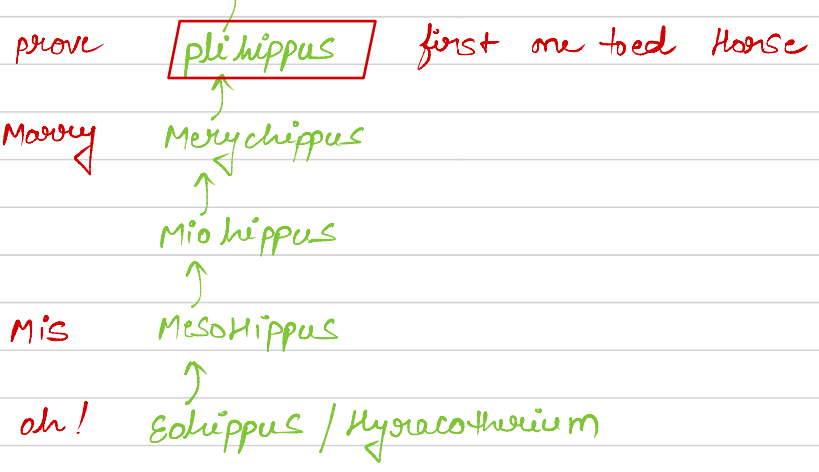 prove plihippus first one toed Horse
Marry Merychippus
Miohippus
Mis MesoHippus
oh! Eohippus / Hyracotherium